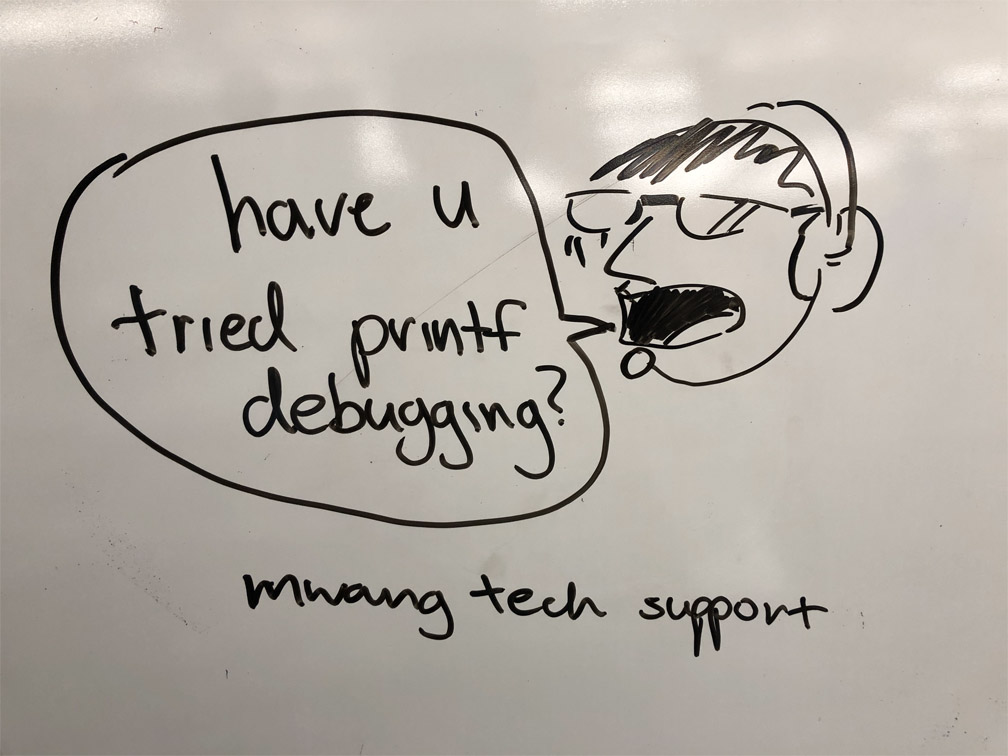 have u
tried printf
debugging?
mwang tech support